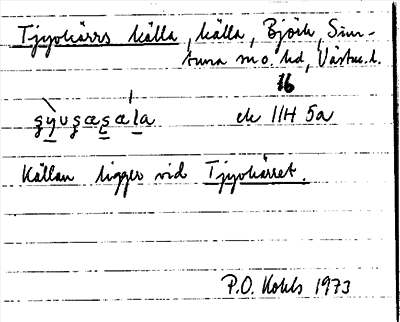 Tjyokärrs källa, källa, Björk, Sim-
tuna sn o. hd, Västm. l.
16
ek 11H 5a
Källan ligger vid Tjyokärret.
P.O. Kohls 1973